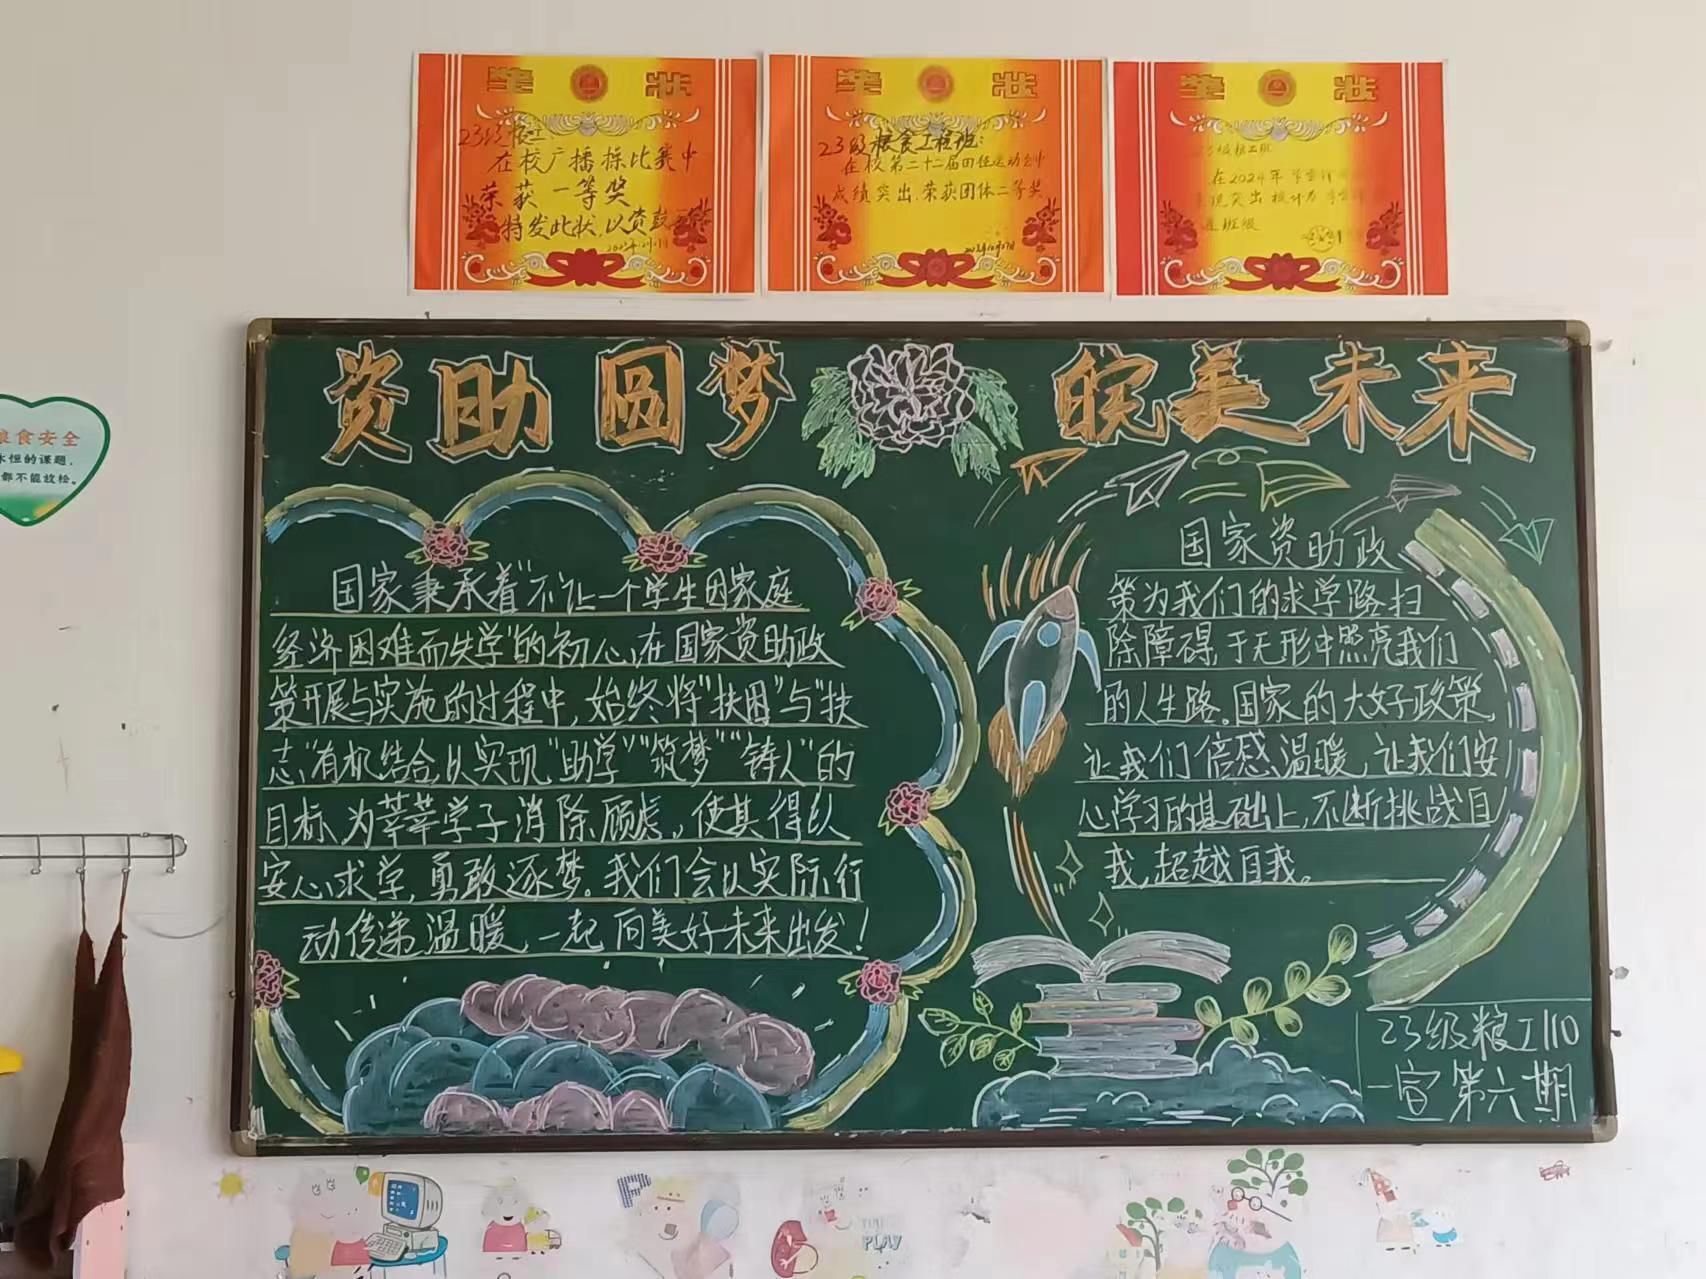 奖 状
23级粮工
在校广播操比赛中
荣获一等奖
特发此状,以资鼓
奖 状
23级粮食工程班:
在校第二十二届田径运动会中
成绩突出,荣获团体二等奖
奖 状
23级粮工班
在2024年
现突出 被评为
进班级
粮食安全
永恒的课题,
都不能放松。
资助圆梦 皖美未来
国家秉承着“不让一个学生因家庭
经济困难而失学”的初心,在国家资助政
策开展与实施的过程中,始终将“扶困”与“扶
志”有机结合,以实现“助学”“筑梦”“铸人”的
目标,为莘莘学子消除顾虑,使其得以
安心求学,勇敢逐梦。我们会以实际行
动传递温暖,一起向美好未来出发!
国家资助政
策为我们的求学路扫
除障碍,于无形中照亮我们
的人生路。国家的大好政策,
让我们倍感温暖,让我们安
心学习的基础上,不断挑战自
我,超越自我。
23级粮工110
一宣第六期
P
PLAY